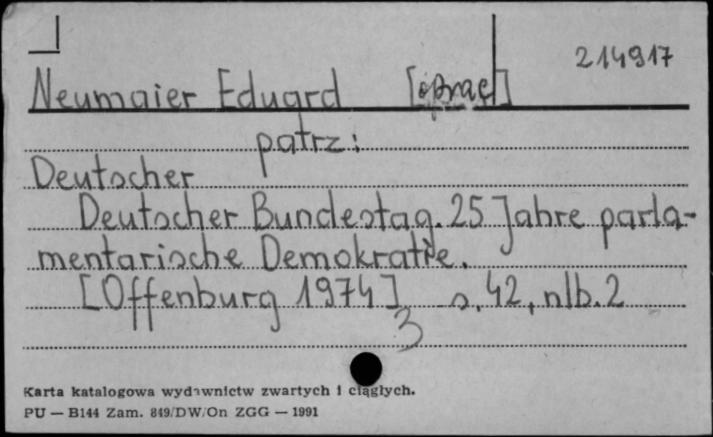 214917
Neumaier Eduard [oprac]
patrz:
Deutscher
Deutscher Bundestag. 25 Jahre parla-
mentarische Demokratie.
[Offenburg 1974] s. 42, nlb. 2
3
Karta katalogowa wydawnictw zwartych i ciągłych.
PU — B144 Zam. 849/DW/On ZGG — 1991